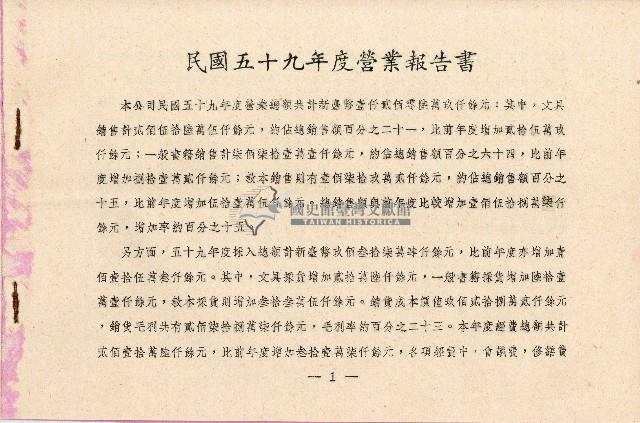 民國五十九年度營業報告書
本公司民國五十九年度營業總額共計新臺幣壹仟貳佰零陸萬玖仟餘元:其中,文具
銷售計貳佰伍拾陸萬伍仟餘元,約佔總銷售額百分之二十一,比前年度增加貳拾伍萬玖
仟餘元;一般書籍銷售計柒佰柒拾壹萬壹仟餘元,約佔總銷售額百分之六十四,比前年
度增加捌拾壹萬貳仟餘元;教本銷售則有壹佰柒拾玖萬貳仟餘元,約佔總銷售額百分之
十五,比前年度增加伍拾壹萬伍仟餘元。總銷售額與前年度比較增加壹佰伍拾捌萬柒仟
餘元,增加率約百分之十五。
另方面,五十九年度採入總額計新臺幣玖佰叁拾柒萬肆仟餘元,比前年度亦增加壹
佰壹拾伍萬叁仟餘元。其中,文具採貨增加貳拾萬陸仟餘元,一般書籍採貨增加陸拾壹
萬壹仟餘元,教本採貨則增加叁拾叁萬伍仟餘元。銷貨成本價值玖佰貳拾捌萬貳仟餘元
,銷貨毛利共有貳佰柒拾捌萬柒仟餘元,毛利率約百分之二十三。本年度經費總額共計
貳佰壹拾萬陸仟餘元,比前年度增加叁拾壹萬柒仟餘元,各項經費中,會議費,修繕費
— 1 —
國史館臺灣文獻館
TAIWAN HISTORICA